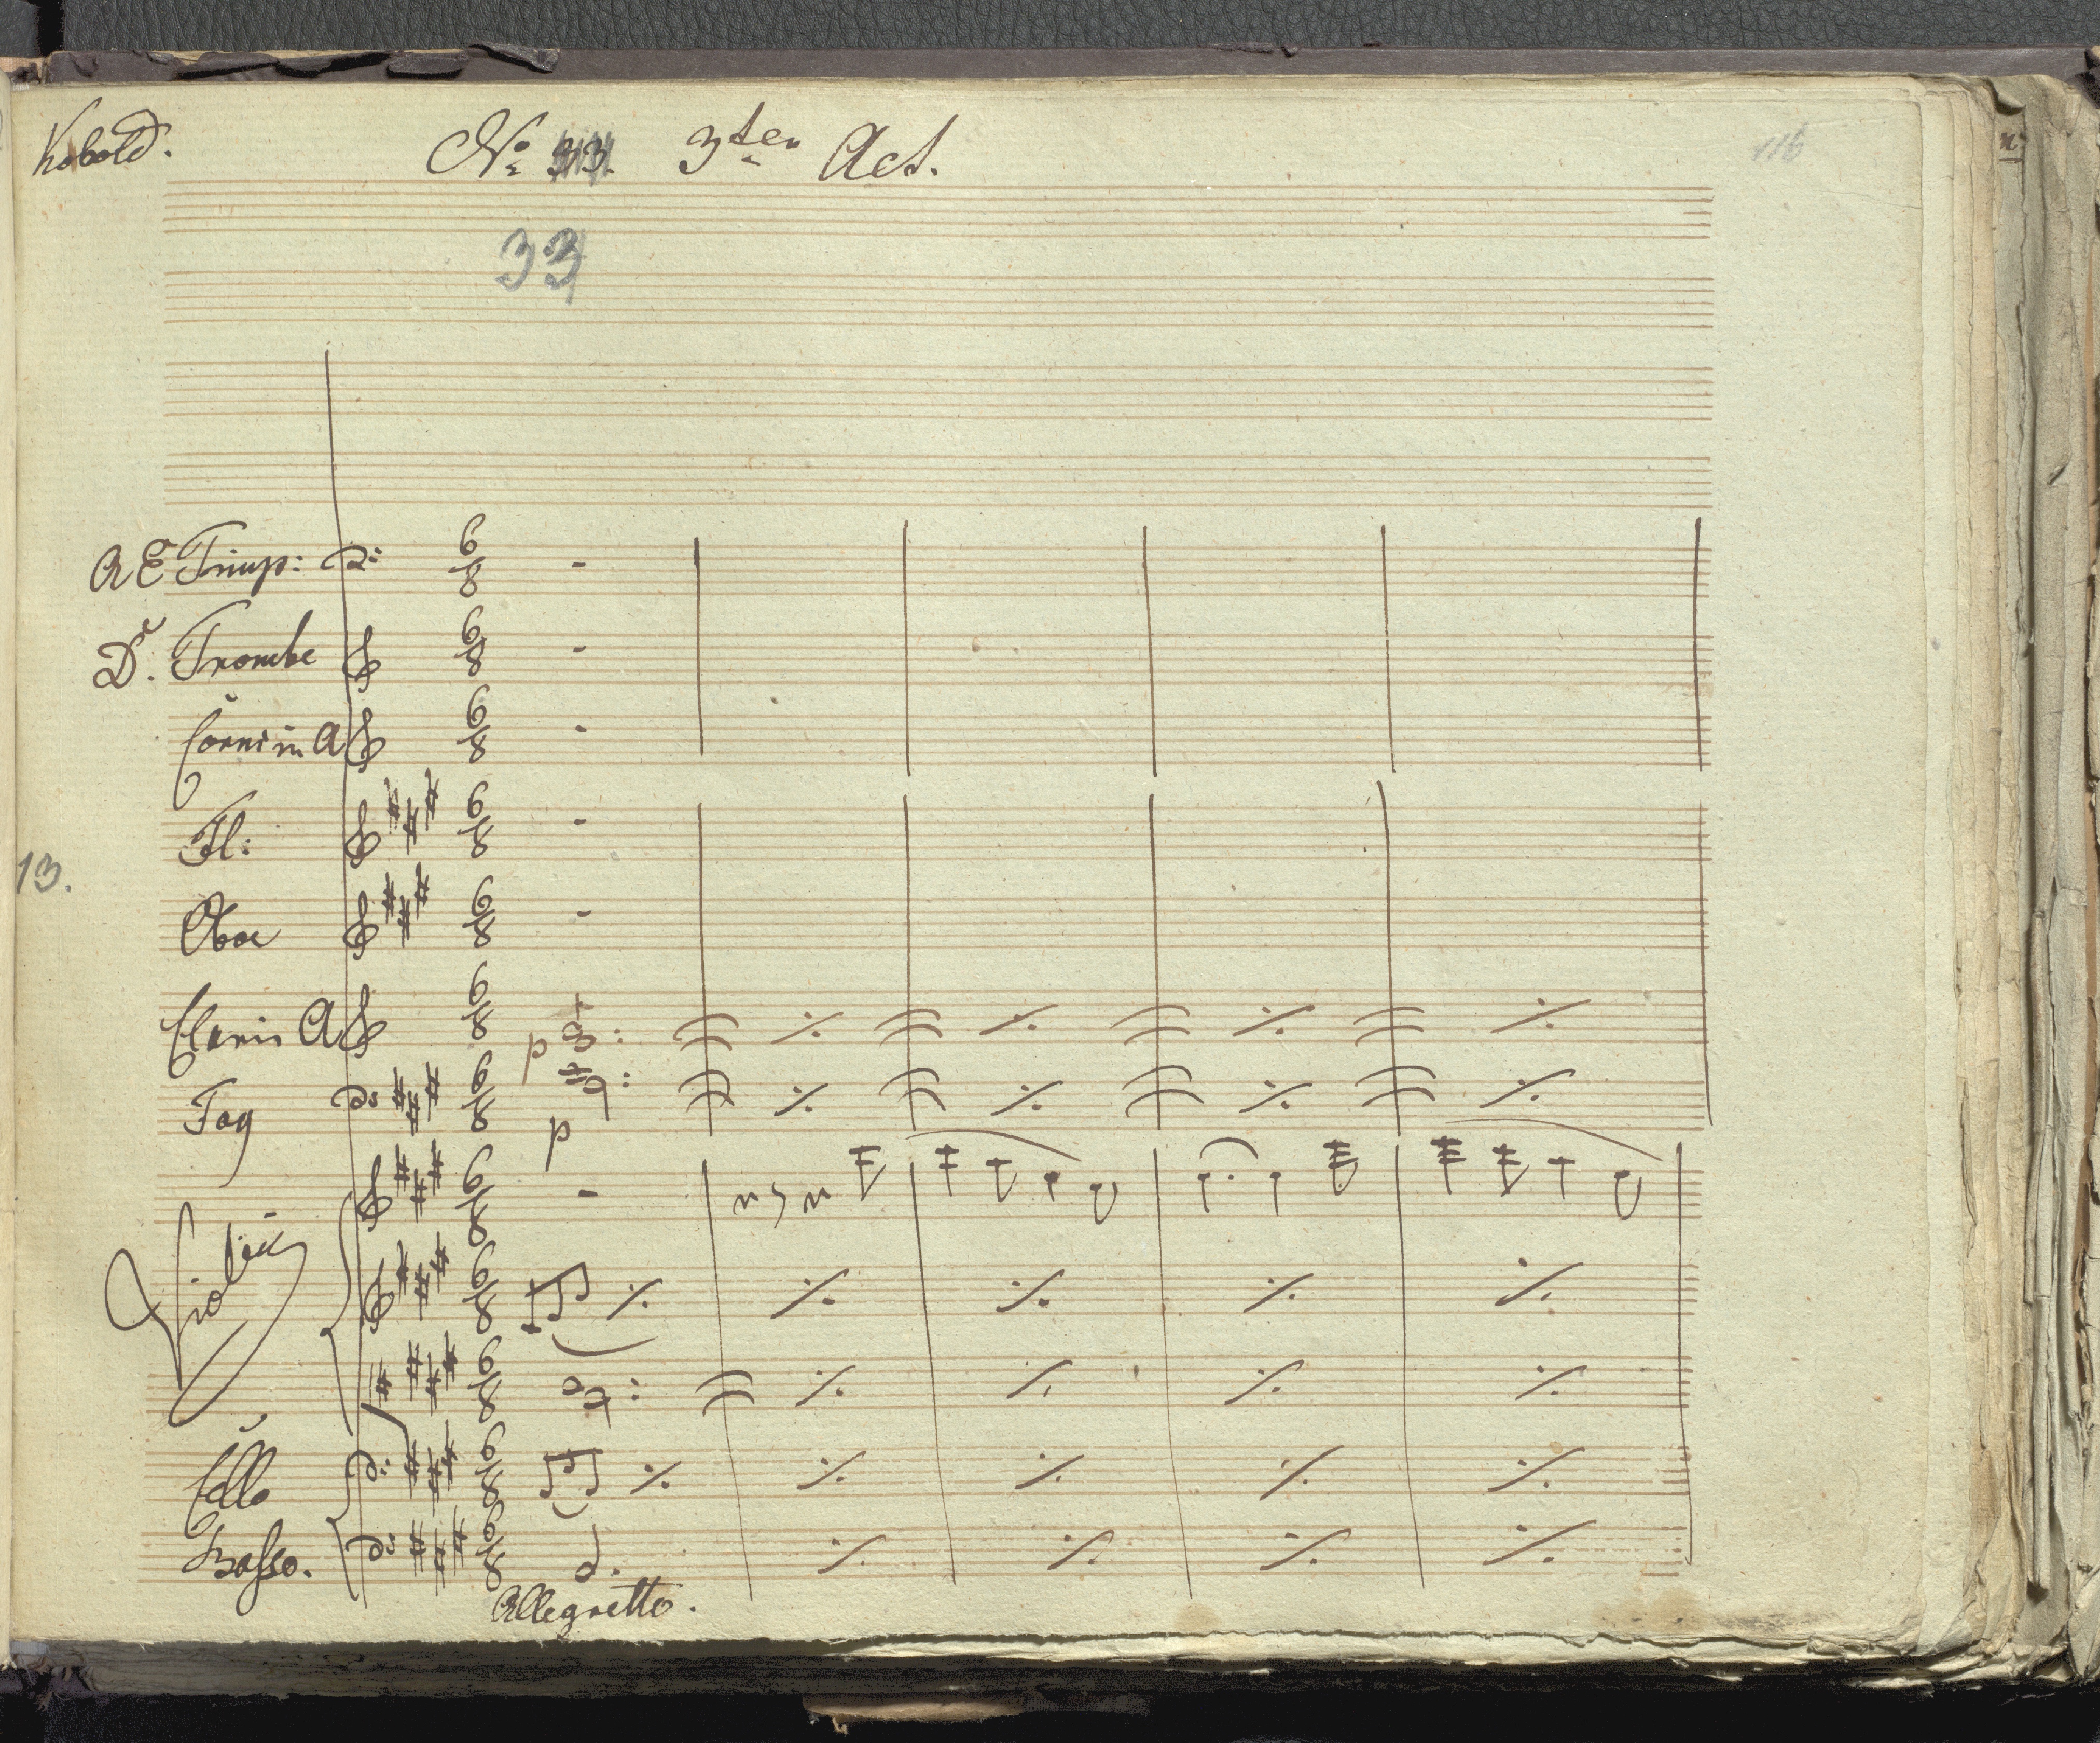 Kobold. No 33. 3ten Act. 116
33
A E Timp:
D. Trombe
Corni in A
Fl:
13.
Oboe
Clarin A
p
Fag
p
Violini
Cello
Basso.
Allegretto.